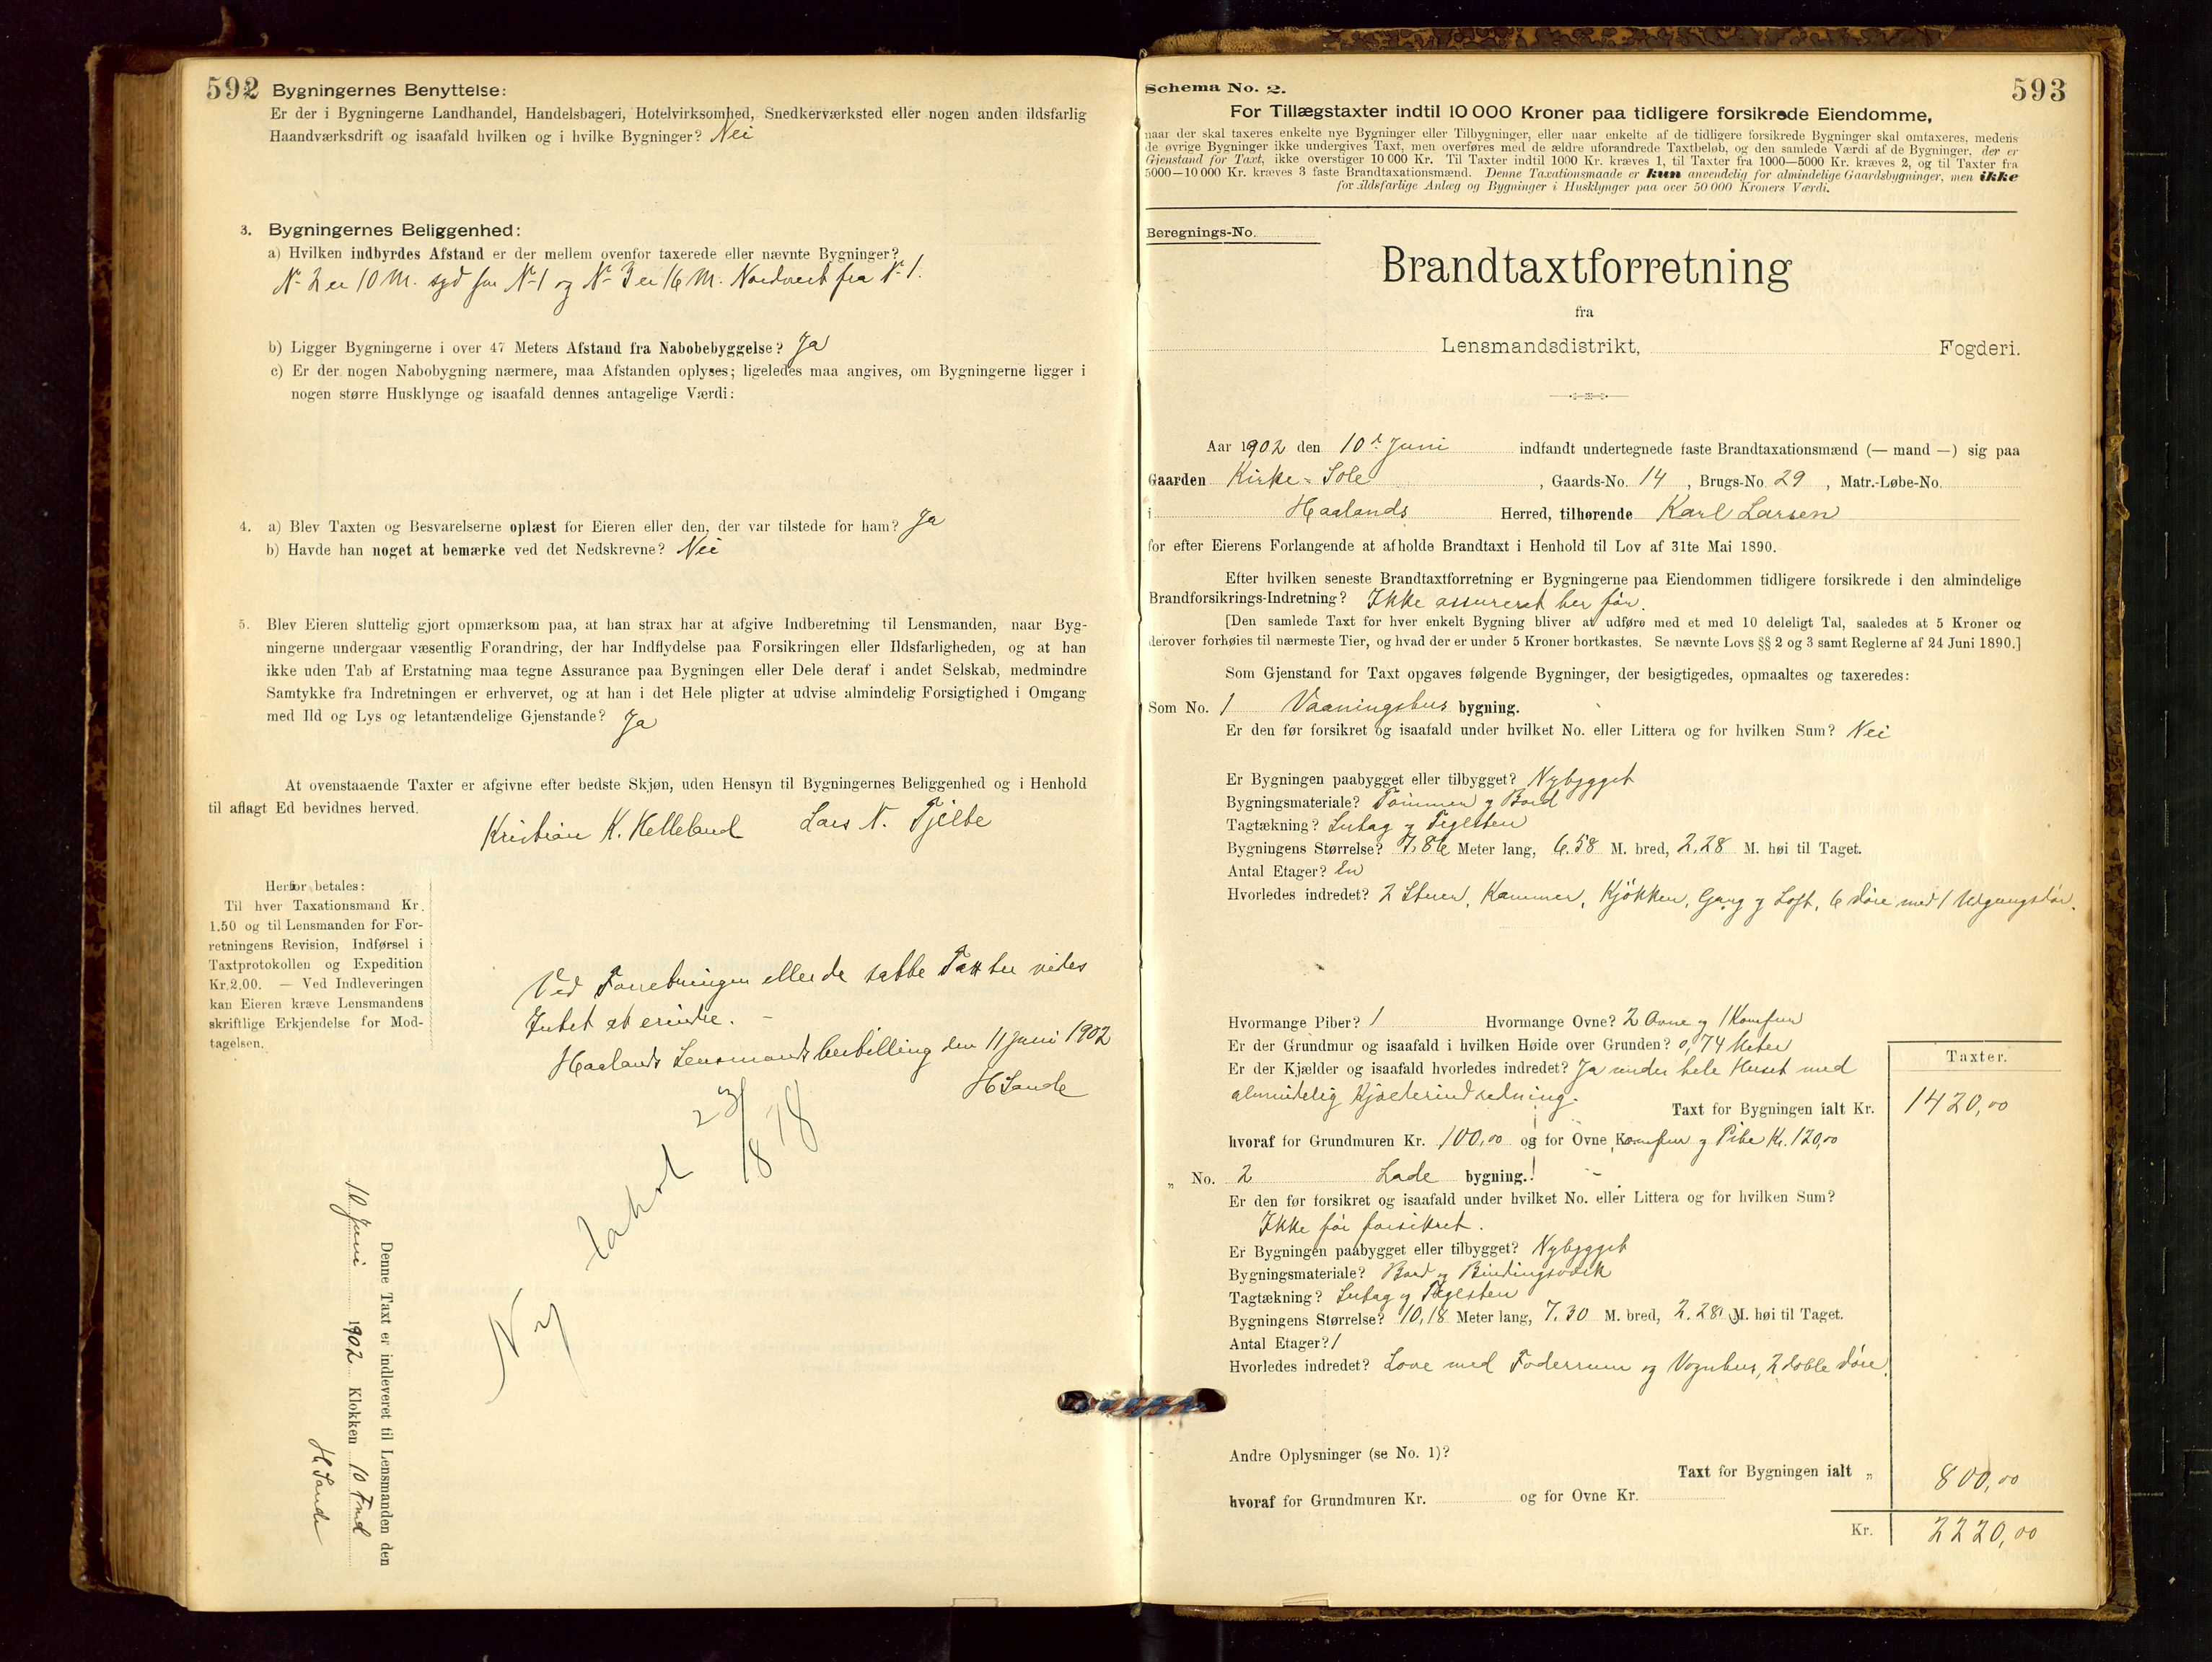 592 Bygningernes Benyttelse:
Er der i Bygningerne Landhandel, Handelsbageri, Hotelvirksomhed, Snedkerværksted eller nogen anden ildsfarlig
Haandværksdrift og isaafald hvilken og i hvilke Bygninger? Nei
3. Bygningernes Beliggenhed:
a) Hvilken indbyrdes Afstand er der mellem ovenfor taxerede eller nævnte Bygninger?
No 2 er 10 M. syd for No 1 og No 3 er 16 M. Nordvest fra No 1.
b) Ligger Bygningerne i over 47 Meters Afstand fra Nabobebyggelse? Ja
c) Er der nogen Nabobygning nærmere, maa Afstanden oplyses; ligeledes maa angives, om Bygningerne ligger i
nogen større Husklynge og isaafald dennes antagelige Værdi:
4. a) Blev Taxten og Besvarelserne oplæst for Eieren eller den, der var tilstede for ham? Ja
b) Havde han noget at bemærke ved det Nedskrevne? Nei
5. Blev Eieren sluttelig gjort opmærksom paa, at han strax har at afgive Indberetning til Lensmanden, naar Byg-
ningerne undergaar væsentlig Forandring, der har Indflydelse paa Forsikringen eller Ildsfarligheden, og at han
ikke uden Tab af Erstatning maa tegne Assurance paa Bygningen eller Dele deraf i andet Selskab, medmindre
Samtykke fra Indretningen er erhvervet, og at han i det Hele pligter at udvise almindelig Forsigtighed i Omgang
med Ild og Lys og letantændelige Gjenstande? Ja
At ovenstaaende Taxter er afgivne efter bedste Skjøn, uden Hensyn til Bygningernes Beliggenhed og i Henhold
til aflagt Ed bevidnes herved.
Kristian K. Helleland Lars N. Tjelte
Herfor betales:
Til hver Taxationsmand Kr.
1.50 og til Lensmanden for For-
retningens Revision, Indførsel i
Taxtprotokollen og Expedition
Kr.2.00. — Ved Indleveringen
kan Eieren kræve Lensmandens
skriftlige Erkjendelse for Mod-
tagelsen.
Ved Forretningen eller de satte Taxter vides
Intet at erindre. -
Haalands Lensmandsbestilling den 11 Juni 1902
H Sande
Ny takst 23/8 18
Denne Taxt er indleveret til Lensmanden den
10 Juni 1902 Klokken 10 Fmd
H. Sande
593
Schema No. 2.
For Tillægstaxter indtil 10 000 Kroner paa tidligere forsikrede Eiendomme,
naar der skal taxeres enkelte nye Bygninger eller Tilbygninger, eller naar enkelte af de tidligere forsikrede Bygninger skal omtaxeres, medens
de øvrige Bygninger ikke undergives Taxt, men overføres med de ældre uforandrede Taxtbeløb, og den samlede Værdi af de Bygninger, der er
Gjenstand for Taxt, ikke overstiger 10 000 Kr. Til Taxter indtil 1000 Kr. kræves 1, til Taxter fra 1000—5000 Kr. kræves 2, og til Taxter fra
5000—10 000 Kr. kræves 3 faste Brandtaxationsmænd. Denne Taxationsmaade er kun anvendelig for almindelige Gaardsbygninger, men ikke
for ildsfarlige Anlæg og Bygninger i Husklynger paa over 50 000 Kroners Værdi.
Beregnings-No.
Brandtaxtforretning
fra
Lensmandsdistrikt, Fogderi.
Aar 1902 den 10de Juni indfandt undertegnede faste Brandtaxationsmænd (— mand —) sig paa
Gaarden Kirke-Sole, Gaards-No. 14, Brugs-No. 29, Matr.-Løbe-No.
i Haalands Herred, tilhørende Karl Larsen
for efter Eierens Forlangende at afholde Brandtaxt i Henhold til Lov af 31te Mai 1890.
Efter hvilken seneste Brandtaxtforretning er Bygningerne paa Eiendommen tidligere forsikrede i den almindelige
Brandforsikrings-Indretning? Ikke assureret her før.
[Den samlede Taxt for hver enkelt Bygning bliver at udføre med et med 10 deleligt Tal, saaledes at 5 Kroner og
derover forhøies til nærmeste Tier, og hvad der er under 5 Kroner bortkastes. Se nævnte Lovs §§ 2 og 3 samt Reglerne af 24 Juni 1890.]
Som Gjenstand for Taxt opgaves følgende Bygninger, der besigtigedes, opmaaltes og taxeredes:
Som No. 1 Vaaningshus bygning.
Er den før forsikret og isaafald under hvilket No. eller Littera og for hvilken Sum? Nei
Er Bygningen paabygget eller tilbygget? Nybygget
Bygningsmateriale? Tømmer og Bord
Tagtækning? Sutag og Teglsten
Bygningens Størrelse? 7,86 Meter lang, 6.58 M. bred, 2.28 M. høi til Taget.
Antal Etager? En
Hvorledes indredet? 2 Stuer, Kammer, Kjøkken, Gang og Loft, 6 døre med 1 Udgangsdør.
Hvormange Piber? 1 Hvormange Ovne? 2 Ovne og 1 Komfur
Er der Grundmur og isaafald i hvilken Høide over Grunden? 0,74 Meter
Er der Kjælder og isaafald hvorledes indredet? Ja under hele Huset med
almindelig Kjælderindredning.
Taxter.
Taxt for Bygningen ialt Kr. 1420,00
hvoraf for Grundmuren Kr. 100,00 og for Ovne, Komfur og Pibe Kr. 120,00
„ No. 2 Lade bygning.
Er den før forsikret og isaafald under hvilket No. eller Littera og for hvilken Sum?
Ikke før forsikret.
Er Bygningen paabygget eller tilbygget? Nybygget
Bygningsmateriale? Bord og Bindingsværk
Tagtækning? Sutag og Teglsten
Bygningens Størrelse? 10,18 Meter lang, 7.30 M. bred, 2.28 M. høi til Taget.
Antal Etager? 1
Hvorledes indredet? Love med Foderrum og Vognhus, 2 doble døre.
Andre Oplysninger (se No. 1)?
Taxt for Bygningen ialt „ 800,00
hvoraf for Grundmuren Kr. og for Ovne Kr.
Kr. 2220,00